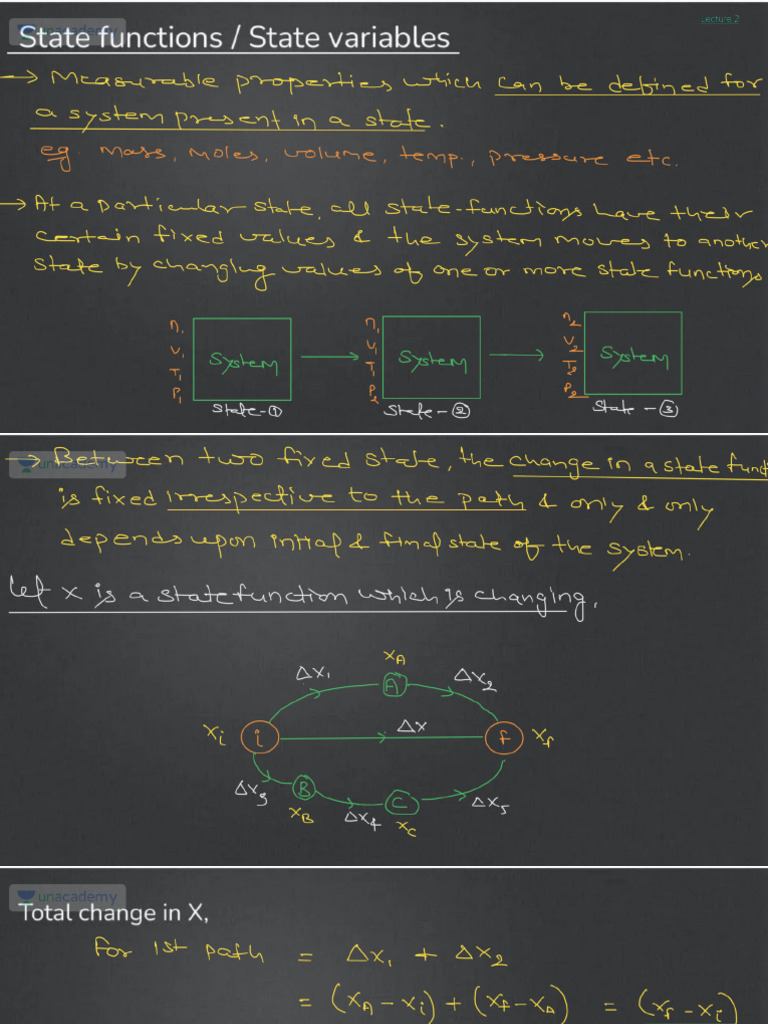 Lecture 2
unacademy
State functions / State variables
→ Measurable properties which can be defined for
a system present in a state.
eg. mass, moles, volume, temp., pressure etc.
→ At a particular state, all state-functions have their
certain fixed values & the system moves to another
state by changing values of one or more state functions
n₁ n₁ n₂
V₁ System → V₁ System → V₂ System
T₁ T₁ T₂
P₁ P₂ P₂
State-① State-② State-③
unacademy
→ Between two fixed state, the change in a state func
is fixed irrespective to the path & only & only
depends upon initial & final state of the system.
let x is a state function which is changing,
xA
Δx₁ A Δx₂
xi i Δx f xf
Δx₃ B C Δx₅
xB Δx₄ xC
unacademy
Total change in X,
for 1st path = Δx₁ + Δx₂
= (xA - xi) + (xf - xA) = (xf - xi)